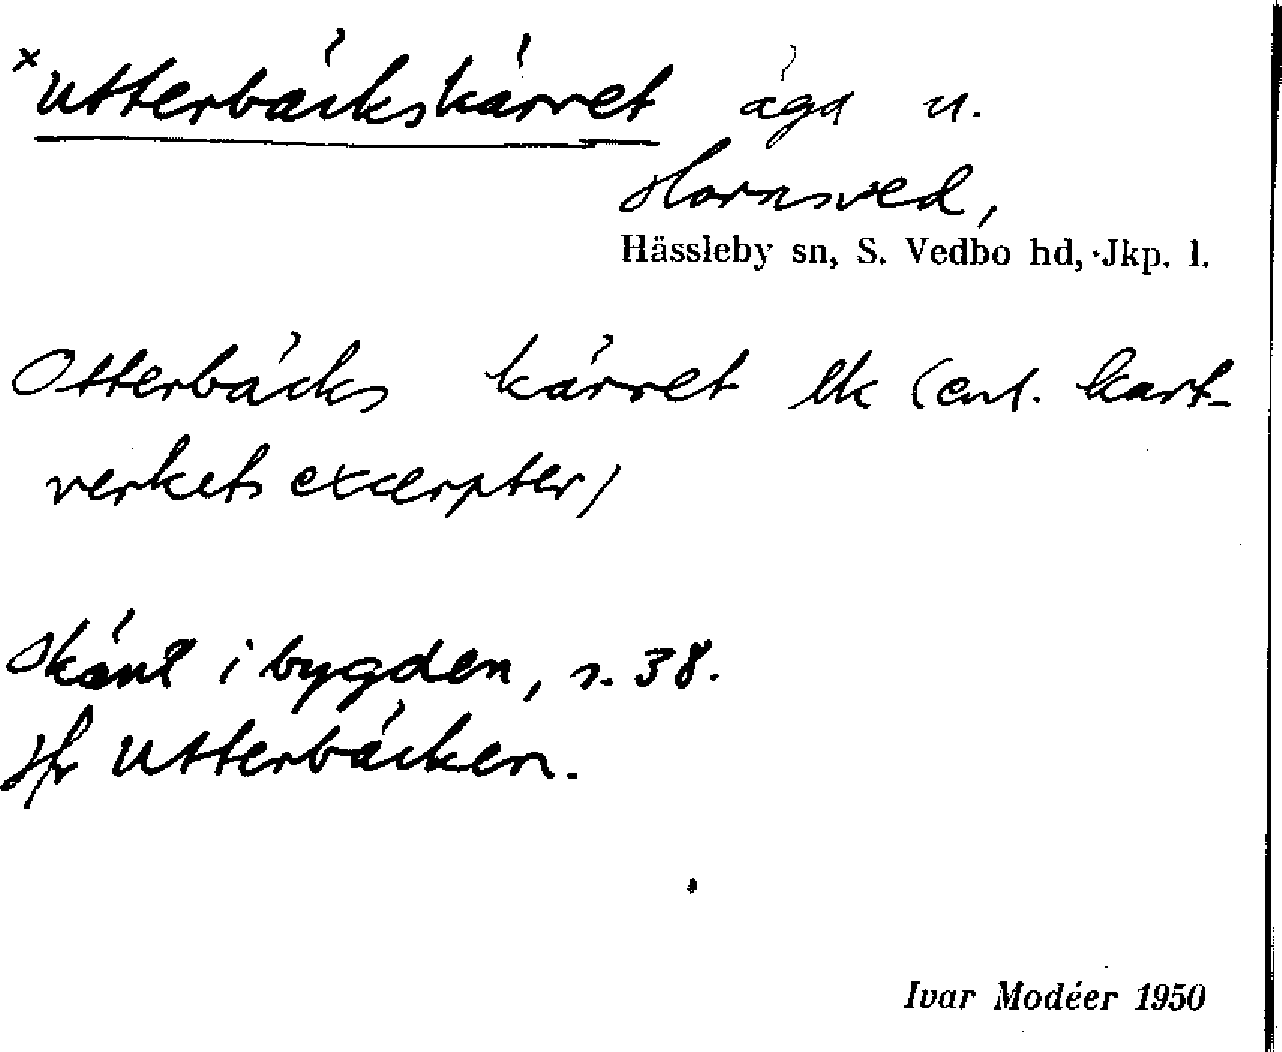 ×Utterbäckskärret äga u.
Hornsved,
Hässleby sn, S. Vedbo hd, Jkp. l.
Otterbäcks kärret lk (enl. kart-
verkets excerpter)
Okänt i bygden, s. 38.
Jfr Utterbäcken.
Ivar Modéer 1950